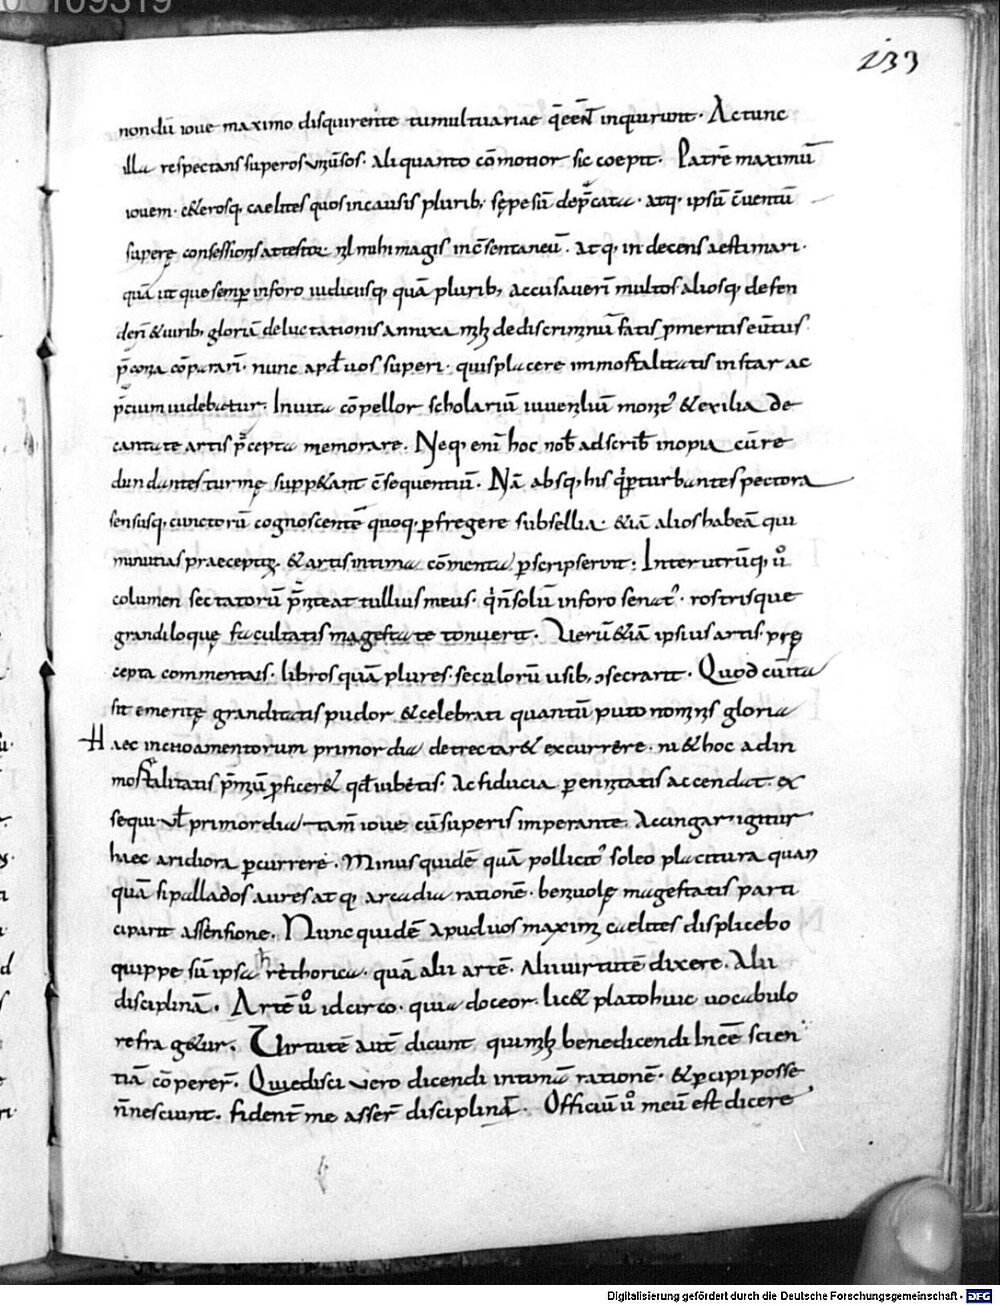 109319
133
nondū ioue maximo disquirente tumultuariae q̄ eēnt inquirunt. Ac tunc
illa respectans superos uniūsos. aliquanto cōmotior sic coepit. Patrē maximū
iouem. c&erosq; caelites quos in causis plurib; sępe sū dep̄cata. atq; ipsū c̄uentū
superę consessionis attestor. nl mihi magis inc̄sentaneū. atq; indecens aestimari.
quā ut que semp in foro iudiciisq; quā plurib; accusauerī multos aliosq; defen
derī & uirib; gloriā deluctationis annixa mihi de discriminū satis p meritis euentus
p̄conia cōparari. nunc apd uos superi. quis placere immortalitatis instar ac
p̄cium uidebatur. Inuita cōpellor scholariū iuueniliū more & exilia de
cantate artis p̄cepta memorare. Neq; enī hoc nob adscrib inopia cū re
dundantes turmę supp&ant c̄sequentiū. Nā absq; his q̇ pturbantes pectora
sensusq; cunctorū cognoscente quoq; pfregere subsellia. &iā alios habeā qui
minutias praeceptis. & artis intima cōmenta pscripserunt: Inter utrūq; ū
columen sectatorū p̄niteat tullius meus. q̇ n̄ solū in foro senatu. rostrisque
grandiloquę facultatis magestate tonuerit. Verū &iā ipsius artis pręp
cepta commentatus. libros quā plures seculorū usib; ɔsecrarit. Quod cū ita
sit emeritę granditatis pudor & celebrati quantū puto nominis gloria
Haec inchoamentorum primordia detrectar& excurrere. ni & hoc ad in
mortalitatis p̄miū p̄ficer& qd iubetis. Ac fiducia perennitatis accendat. ex
sequi ul primordia tam ioue cū superis imperante. Accingar igitur
haec aridiora pcurrere. Minus quidē quā pollicit' soleo placitura quan
quā si pallados aures atq; arcadia rationē. beniuolę magestatis parti
ciparit assensione. Nunc quidē apud uos maximi caelites displicebo
quippe sū ipsa rethorica. quā alii artē. Alii uirtutē dixere. Alii
disciplinā. Artē ū idcirco. quia doceor. lic& plato huic uocabulo
refrag&ur. Virtutē autē dicunt qui mihi bene dicendi inēē scien
tiā cōperer. Qui edisci uero dicendi intimā rationē. & pcipi posse
n̄ nesciunt. fident me asser disciplinā. Officiū ū meū est dicere
Digitalisierung gefördert durch die Deutsche Forschungsgemeinschaft - DFG